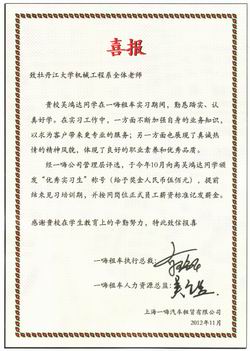 喜报
致牡丹江大学机械工程系全体老师
贵校吴鸿达同学在一嗨租车实习期间，勤恳踏实、认
真好学。在实习工作中，一方面不断加强自身的业务知识，
以求为客户带来更专业的服务；另一方面也展现了真诚热
情的精神风貌，体现了良好的职业素养和优秀品质。
经一嗨公司管理层评选，于今年10月向吴鸿达同学颁
发“优秀实习生”称号（给予奖金人民币伍佰元），提前
结束见习培训期，并按同岗位正式员工薪资标准亿发薪金。
感谢贵校在学生教育上的辛勤努力，特此致信报喜
一嗨租车执行总裁：
一嗨租车人力资源总监：
上海一嗨汽车租赁有限公司
2012年11月